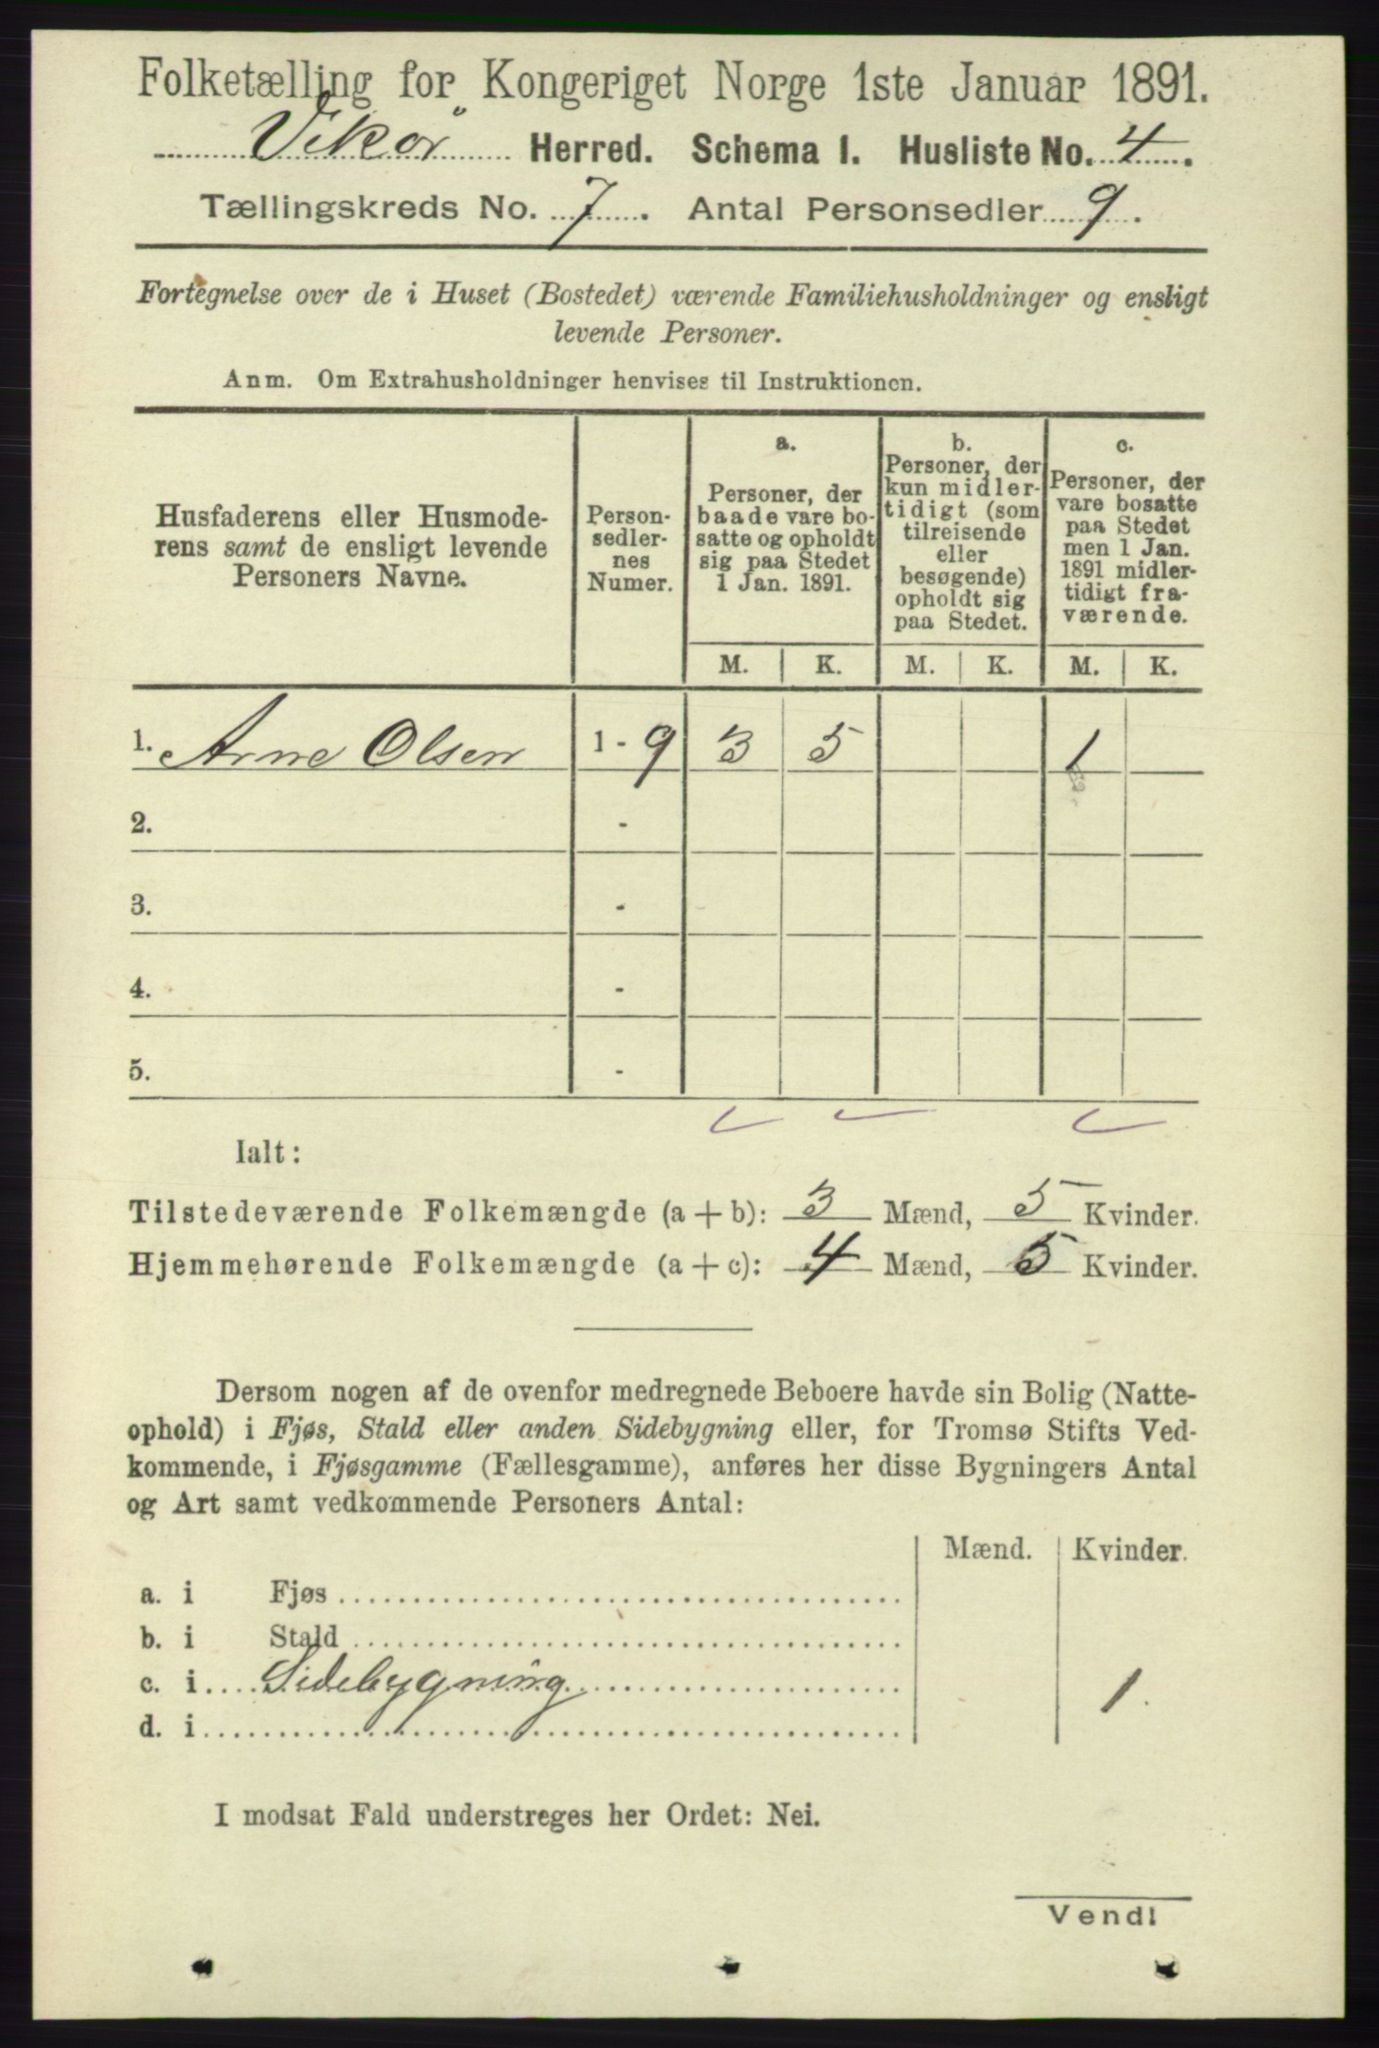 Folketælling for Kongeriget Norge 1ste Januar 1891.
Vikør Herred. Schema I. Husliste No. 4.
Tællingskreds No. 7. Antal Personsedler 9.
Fortegnelse over de i Huset (Bostedet) værende Familiehusholdninger og ensligt
levende Personer.
Anm. Om Extrahusholdninger henvises til Instruktionen.
Husfaderens eller Husmode-
rens samt de ensligt levende
Personers Navne.
Person-
sedler-
nes
Numer.
a.
Personer, der
baade vare bo-
satte og opholdt
sig paa Stedet
1 Jan. 1891.
b.
Personer, der
kun midler-
tidigt (som
tilreisende
eller
besøgende)
opholdt sig
paa Stedet.
c.
Personer, der
vare bosatte
paa Stedet
men 1 Jan.
1891 midler-
tidigt fra-
værende.
M. K. M. K. M. K.
1. Arne Olsen 1 - 9 3 5 1
2. -
3. -
4. -
5. -
Ialt:
Tilstedeværende Folkemængde (a + b): 3 Mænd, 5 Kvinder.
Hjemmehørende Folkemængde (a + c): 4 Mænd, 5 Kvinder.
Dersom nogen af de ovenfor medregnede Beboere havde sin Bolig (Natte-
ophold) i Fjøs, Stald eller anden Sidebygning eller, for Tromsø Stifts Ved-
kommende, i Fjøsgamme (Fællesgamme), anføres her disse Bygningers Antal
og Art samt vedkommende Personers Antal:
Mænd. Kvinder.
a. i Fjøs
b. i Stald
c. i Sidebygning 1
d. i
I modsat Fald understreges her Ordet: Nei.
Vend!